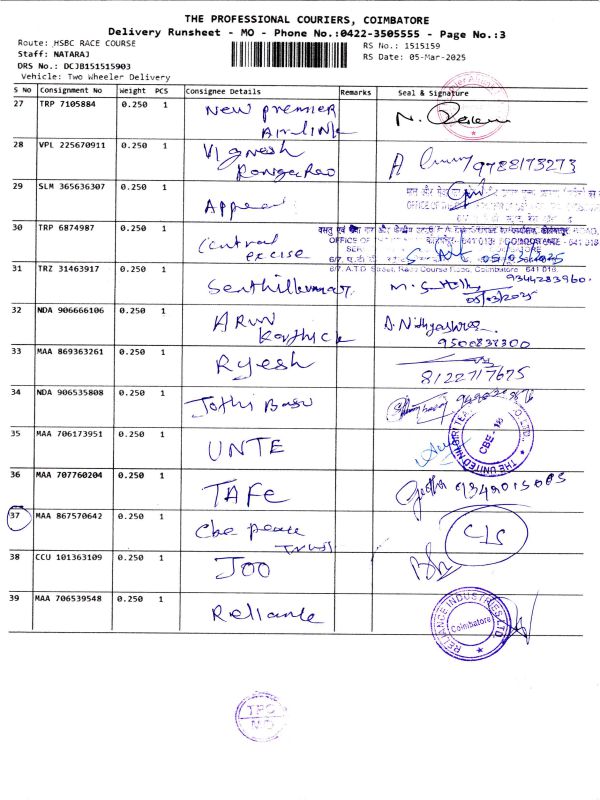 THE PROFESSIONAL COURIERS, COIMBATORE
Delivery Runsheet - MO - Phone No.:0422-3505555 - Page No.:3
Route: HSBC RACE COURSE
RS No.: 1515159
Staff: NATARAJ
RS Date: 05-Mar-2025
DRS No.: DCJB151515903
Vehicle: Two Wheeler Delivery
S No Consignment No Weight PCS Consignee Details Remarks Seal & Signature
27 TRP 7105884 0.250 1 New premier
Airlink
28 VPL 225670911 0.250 1 Vignesh 9788173273
RangaRao
29 SLM 365636307 0.250 1
30 TRP 6874987 0.250 1 Central
excise 05/03/2025
6/7, A.T.D. Street, Race Course Road, Coimbatore - 641 018.
31 TRZ 31463917 0.250 1 Senthilkumar 9344283960
05/03/2025
32 NDA 906666106 0.250 1 Arun
Karthick 9500838300
33 MAA 869363261 0.250 1 Rajesh
8122717675
34 NDA 906535808 0.250 1 Jothi Basu
35 MAA 706173951 0.250 1 UNTE
THE UNITED NILGIRI TEA CO. LTD. CBE - 18
36 MAA 707760204 0.250 1 TAFE Geetha
37 MAA 867570642 0.250 1 Cbe peace
Trust
38 CCU 101363109 0.250 1 JOO
39 MAA 706539548 0.250 1 Reliance
RELIANCE INDUSTRIES LTD. Coimbatore
TPC
MO